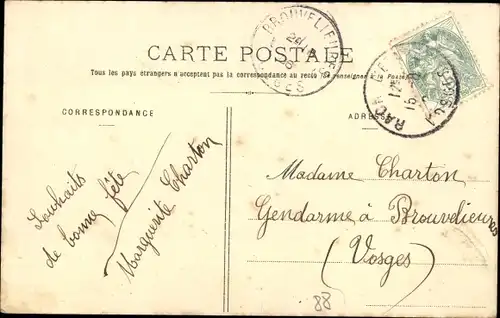 CARTE POSTALE
Tous les pays étrangers n'acceptent pas la correspondance au recto (Se renseigner à la Poste)
CORRESPONDANCE
ADRESSE
Souhaits
de bonne fête
Marguerite Charton
Madame Charton
Gendarme à Brouvelieures
(Vosges)
88
BROUVELIEURES
VOSGES